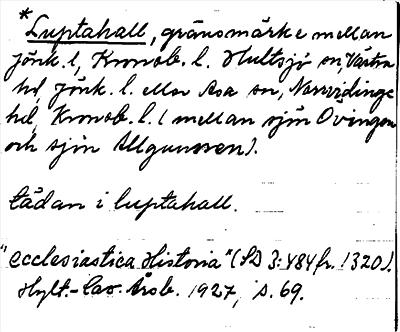 * Luptahall, gränsmärke mellan
Jönk. l, Kronob. l. Hultsjö sn, Västra
hd, Jönk. l. eller Asa sn, Norrvidinge
hd, Kronob. l. (mellan sjön Övingen
och sjön Allgunnen).
tädan i luptahall.
"Ecclesiastica Historia" (SD 3:484 fr. 1320).
Hylt.-Cav. Årsb. 1927, s. 69.